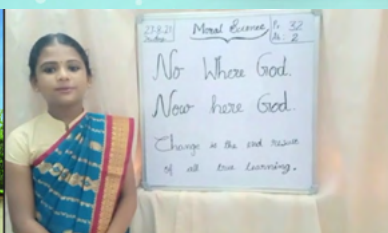 27-8-21
Moral Science
P: 32
No Where God.
Now here God.
Change is the end result
of all true learning.